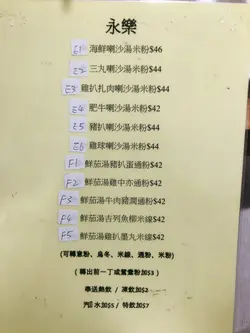 永樂
E1 海鮮喇沙湯米粉$46
E2 三丸喇沙湯米粉$44
E3 雞扒扎肉喇沙湯米粉$44
E4 肥牛喇沙湯米粉$42
E5 豬扒喇沙湯米粉$44
E6 雞球喇沙湯米粉$44
F1 鮮茄湯豬扒蛋通粉$42
F2 鮮茄湯雞中亦通粉$42
F3 鮮茄湯牛肉豬潤通粉$42
F4 鮮茄湯吉列魚柳米線$42
F5 鮮茄湯雞扒墨丸米線$42
(可轉意粉、烏冬、米線、通粉、米粉)
(轉出前一丁或鴛鴦粉加$3)
奉送熱飲 / 凍飲加$2
汽水加$5 / 特飲加$7